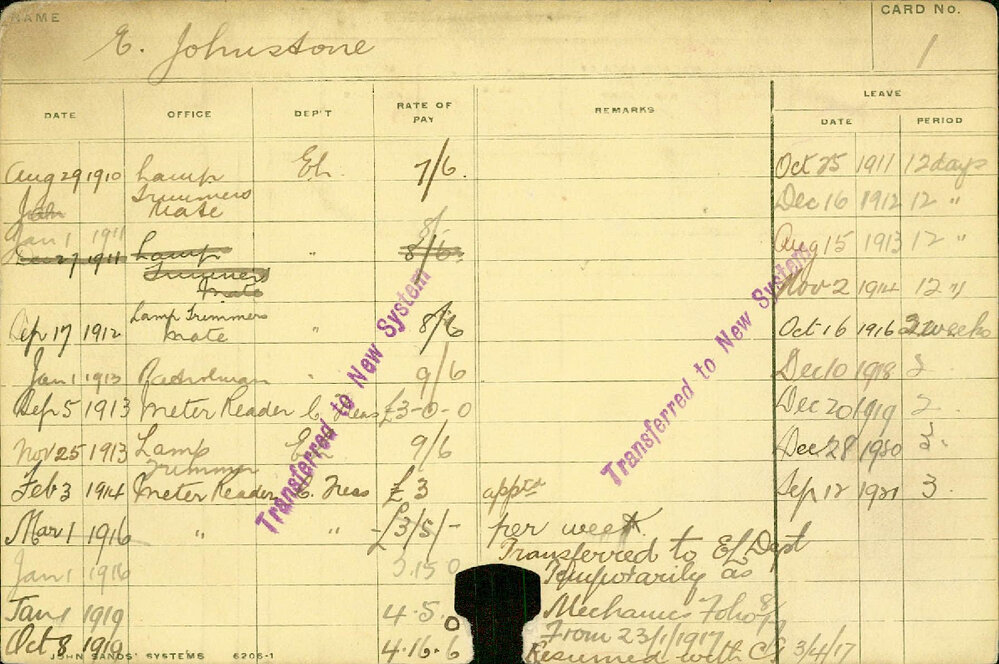 NAME
CARD No.
E. Johnstone
1
DATE OFFICE DEP'T RATE OF PAY REMARKS LEAVE
DATE PERIOD
Aug 29 1910 Lamp El. 7/6 Oct 25 1911 12 days
Trimmers Dec 16 1912 12 "
Mate
Jan 1 1911 8/ Aug 15 1913 12 "
Dec 27 1911 Lamp " 8/6
Trimmers
Mate Nov 2 1914 12 "
Sep 17 1912 Lamp Trimmers " 8/6 Oct 16 1916 2 weeks
Mate
Jan 1 1913 Patrolman " 9/6 Dec 10 1918 2
Sep 5 1913 Meter Reader C. Treas £3-0-0 Dec 20 1919 2
Nov 25 1913 Lamp El. 9/6 Dec 28 1920 3
Trimmer
Feb 3 1914 Meter Reader C. Treas £3 apptd Sep 12 1921 3
Mar 1 1916 " " £3/5/- per week
Transferred to El Dept
Jan 1 1918 3.15.0 Temporarily as
Jan 1 1919 4.5.0 Mechanic Folio 8/
From 23/1/1917
Oct 8 1919 4.16.6 Resumed with C 3/4/17
Transferred to New System
Transferred to New System
JOHN SANDS' SYSTEMS 6206-1